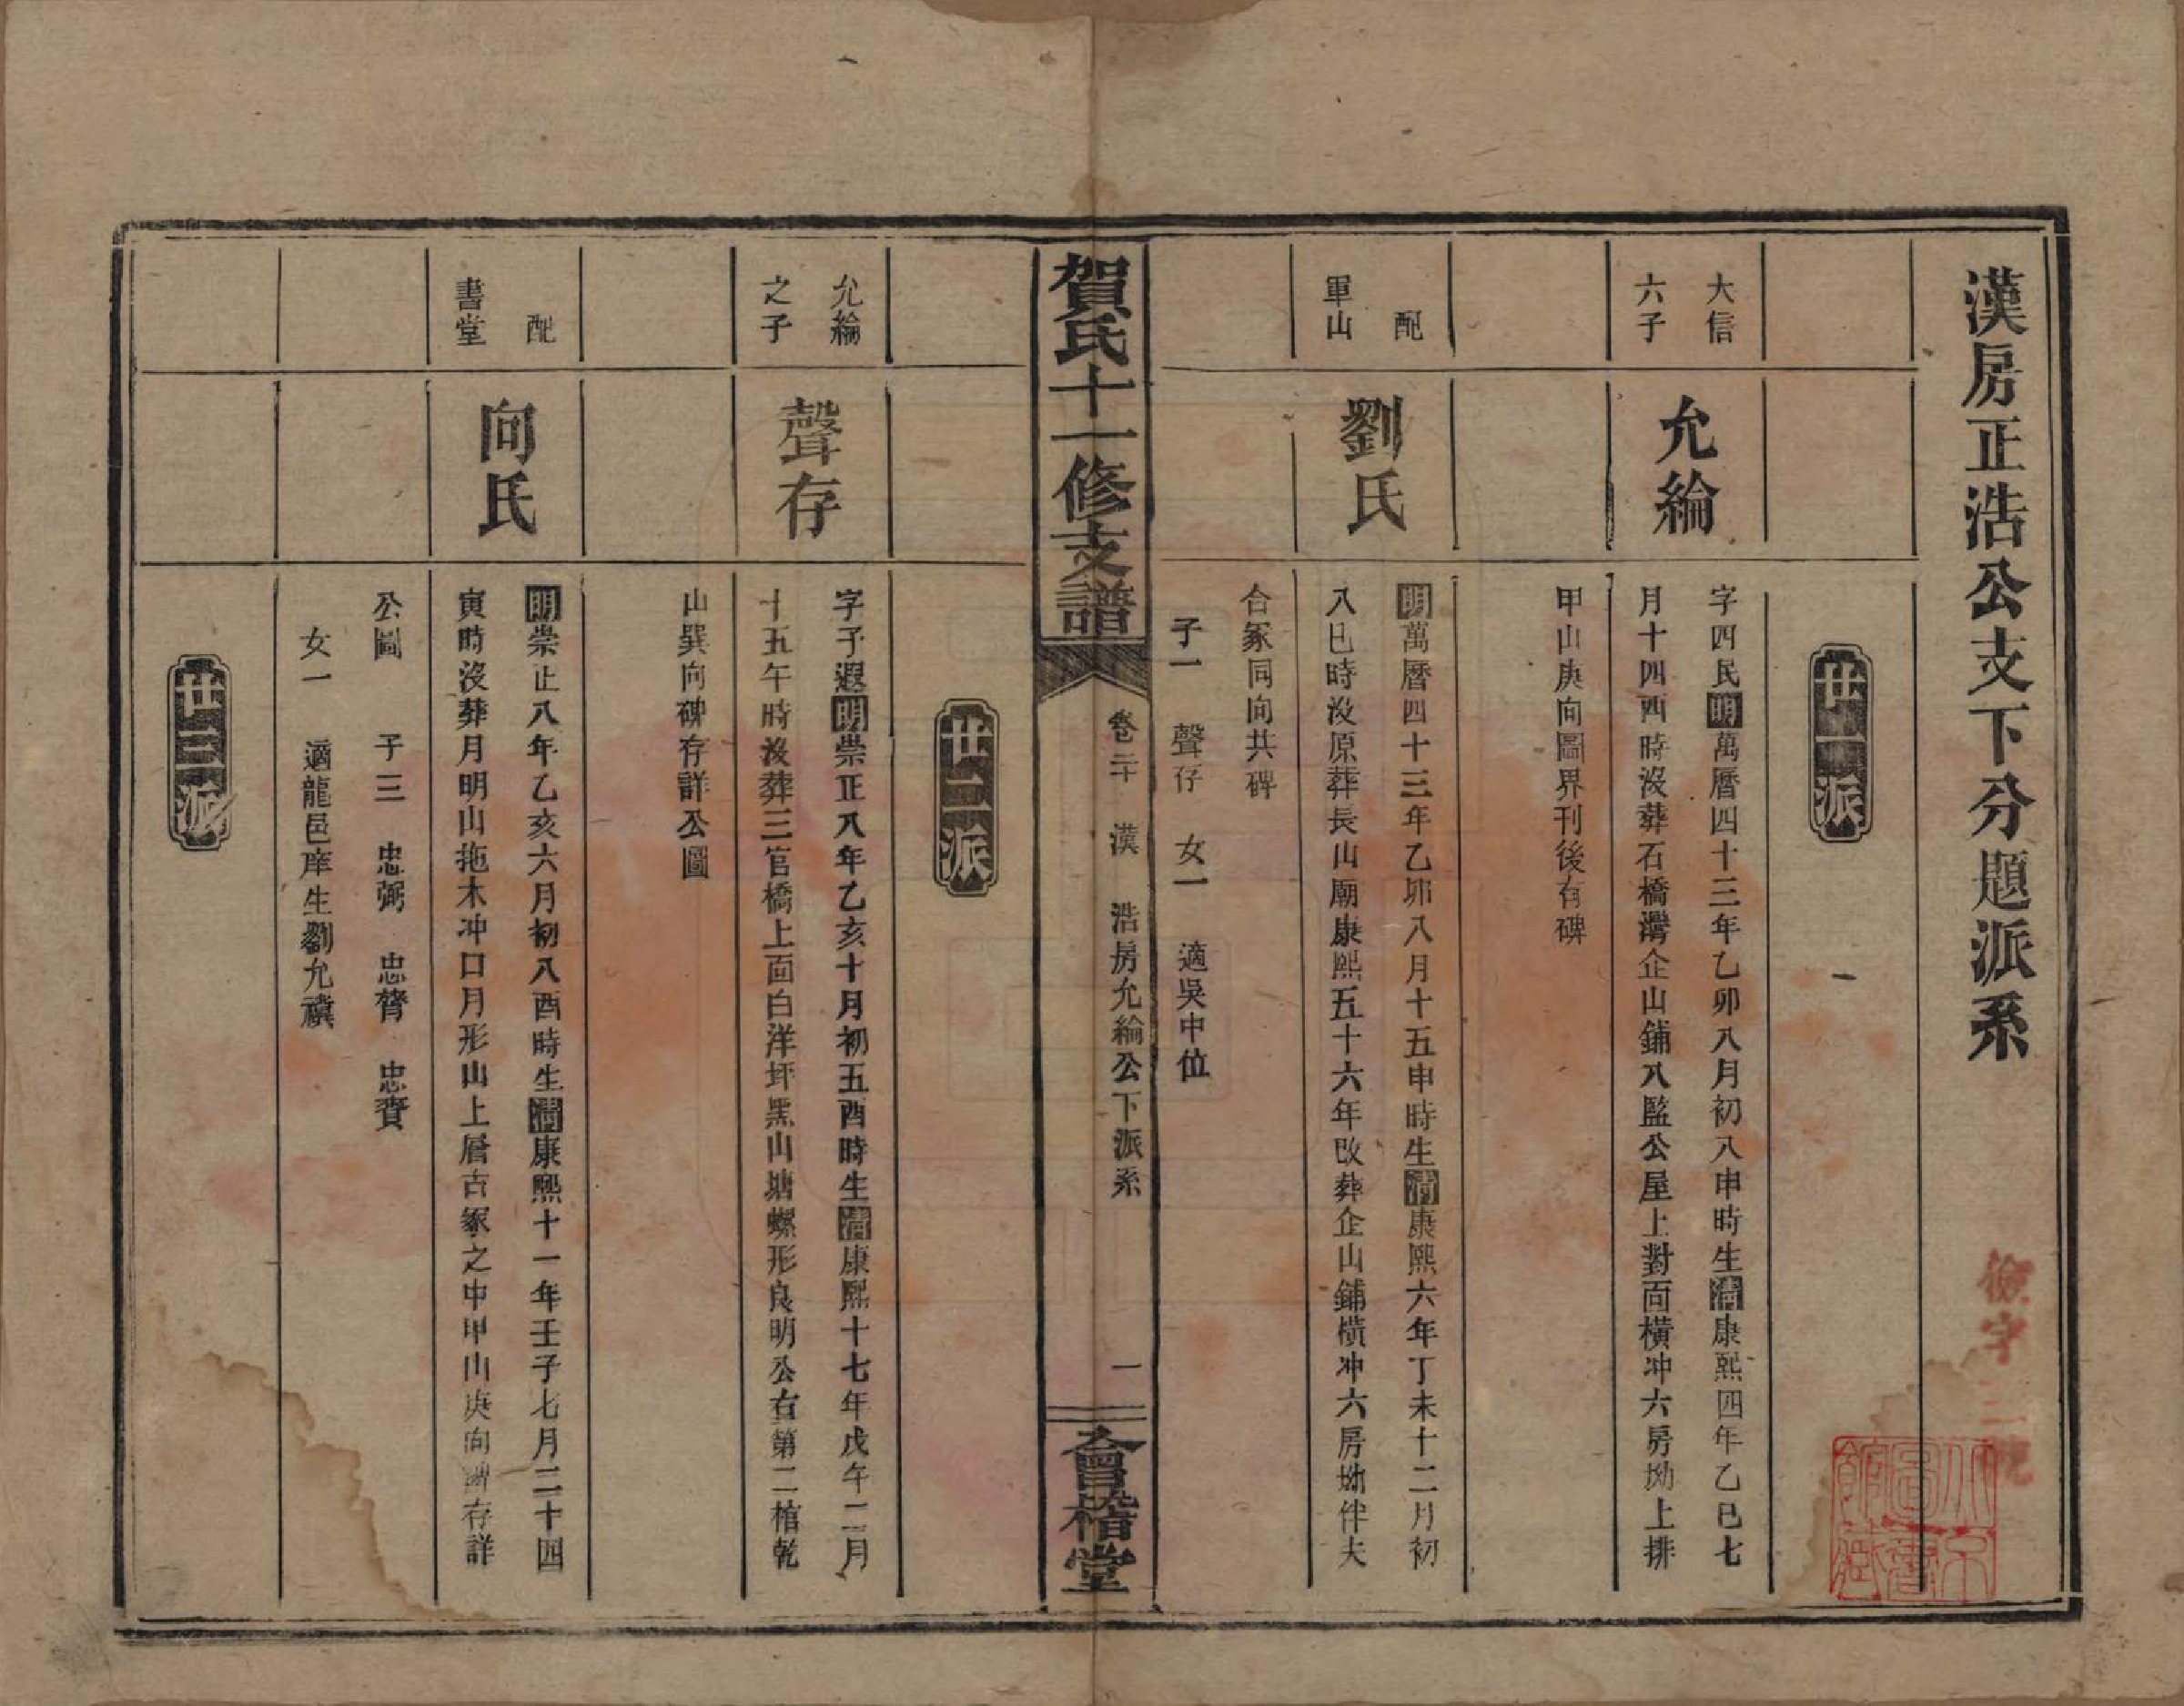 漢房正浩公支下分題派系
世一派
一
大信
六子
允綸
字四民明萬曆四十三年乙卯八月初八申時生清康熙四年乙巳七
月十四酉時沒葬石橋灣企山鋪八監公屋上對面橫冲六房坳上排
甲山庚向圖界刊後有碑
配
軍山
劉氏
明萬曆四十三年乙卯八月十五申時生清康熙六年丁未十二月初
八巳時沒原葬長山廟康熙五十六年改葬企山鋪橫冲六房坳伴夫
合冢同向共碑
子一 聲存 女一 適吳中位
賀氏十一修支譜
卷二十 漢 浩房允綸公下派系
一
會稽堂
世二派
允綸
之子
聲存
字子遐明崇正八年乙亥十月初五酉時生清康熙十七年戊午二月
十五午時沒葬三官橋上面白洋坪黑山塘螺形良明公右第二棺乾
山巽向碑存詳公圖
配
書堂
向氏
明崇正八年乙亥六月初八酉時生清康熙十一年壬子七月二十四
寅時沒葬月明山拖木冲口月形山上層古冢之中甲山庚向碑存詳
公圖 子三 忠弼 忠賛 忠賚
女一 適龍邑庠生劉允禩
世三派
儉字